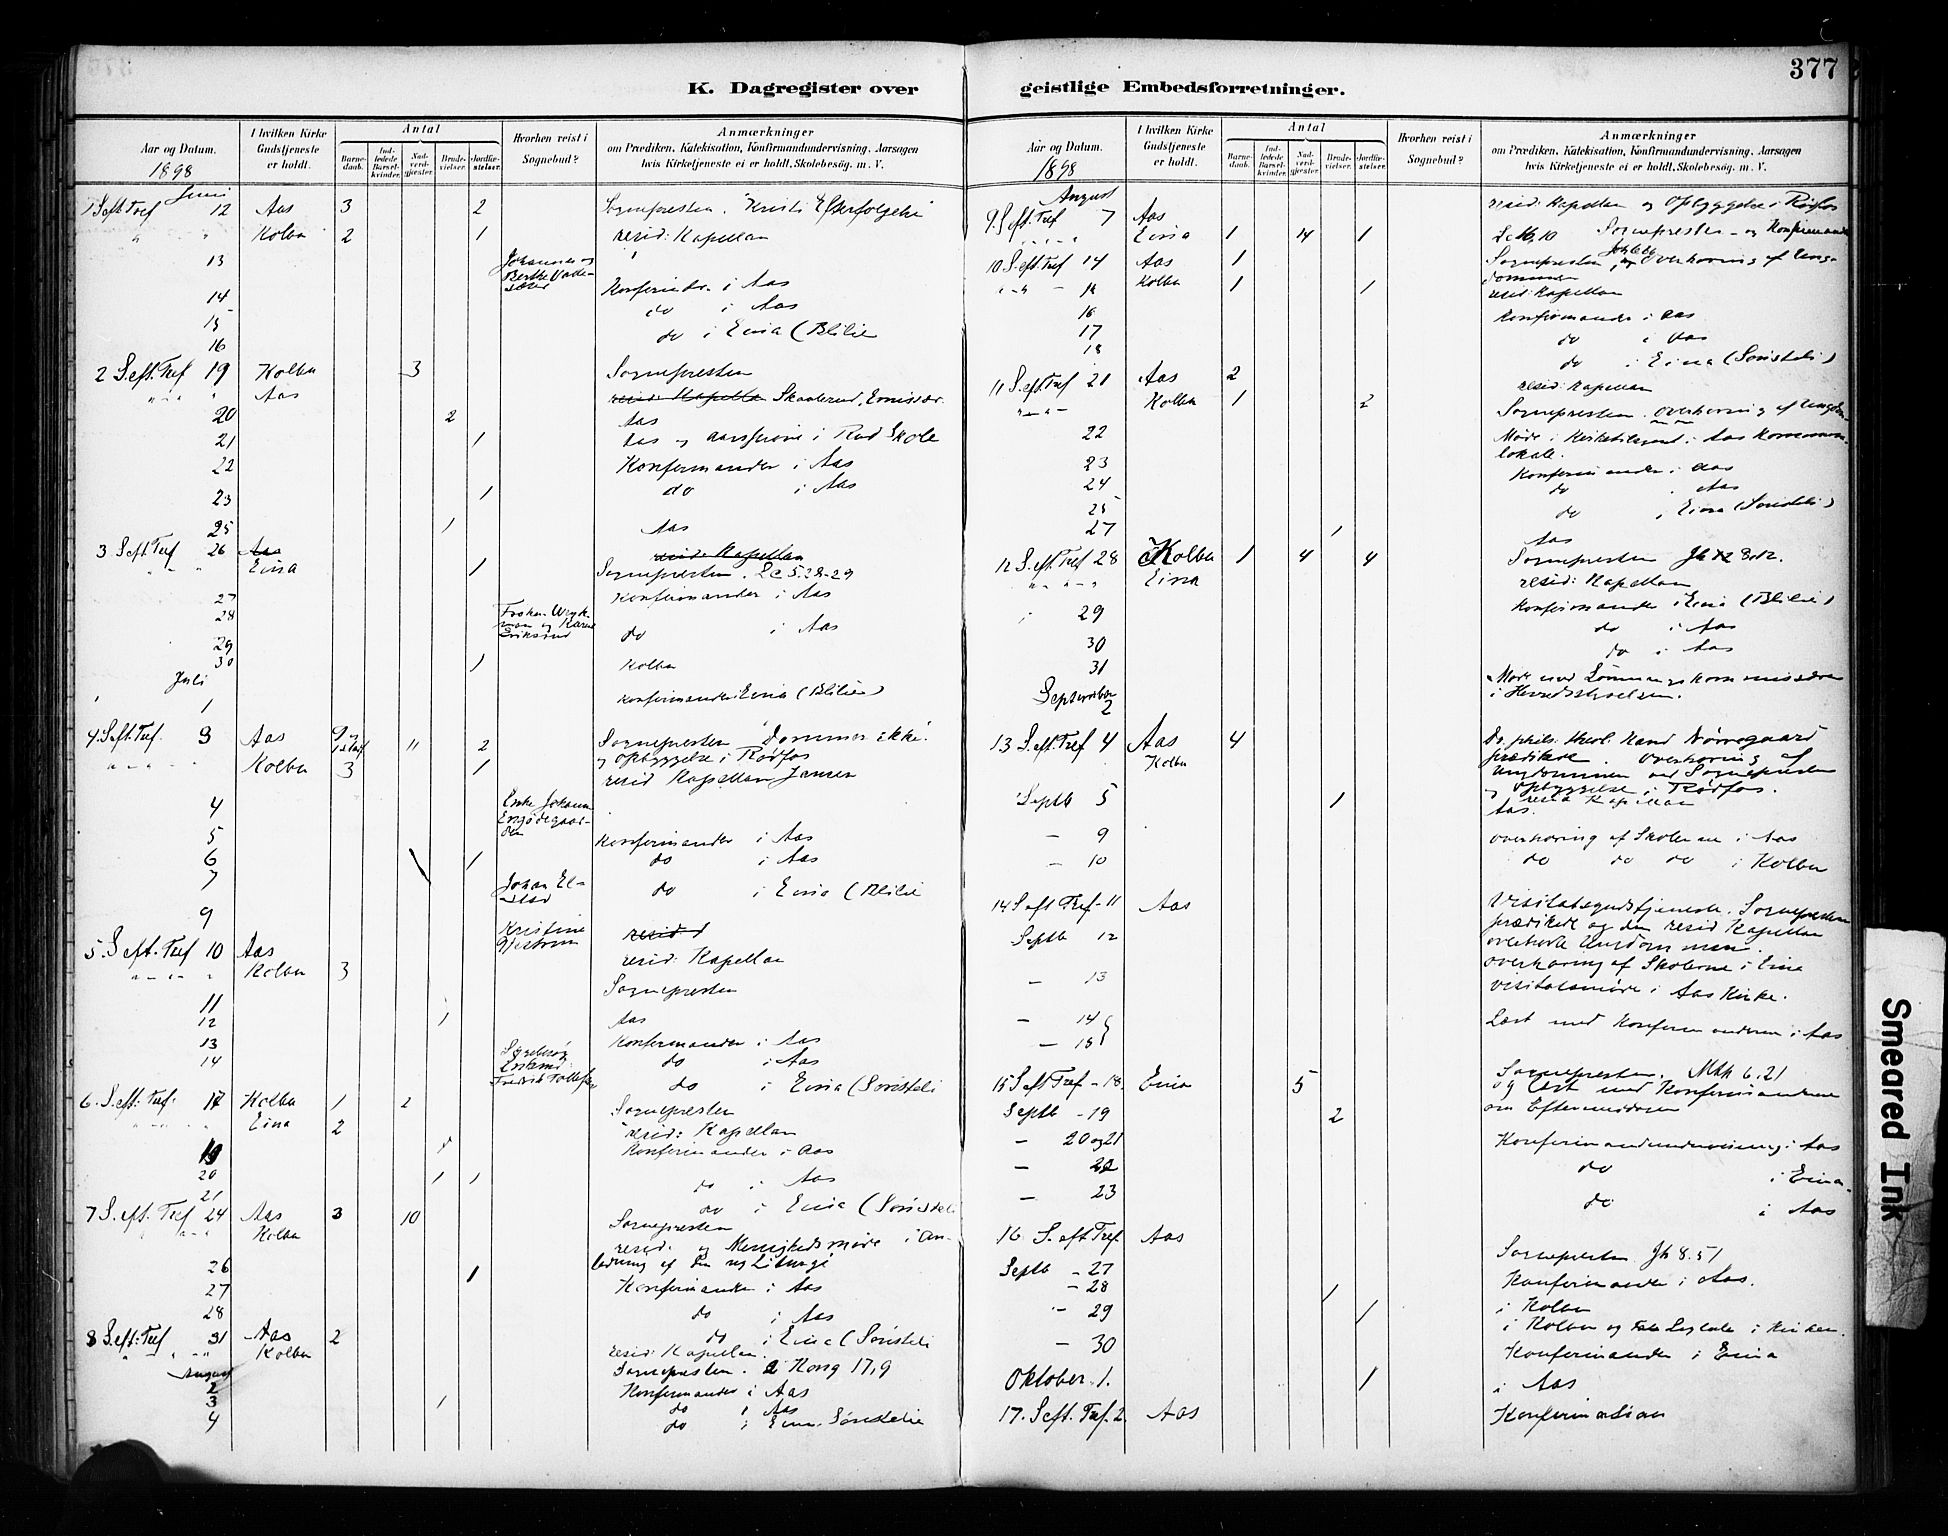 377
K. Dagregister over geistlige Embedsforretninger.
Aar og Datum. 1898
I hvilken Kirke Gudstjeneste er holdt.
Antal
Barnedaab. Indledede Barselkvinder. Nadverdgjester. Brudevielser. Jordfæstelser.
Hvorhen reist i Sognebud?
Anmærkninger
om Prædiken, Katekisation, Konfirmandundervisning, Aarsagen
hvis Kirketjeneste ei er holdt, Skolebesøg. m. V.
Juni
1 S eft Tref 12 Aas 3 2 Sognepresten. Kristi Efterfølgelse
" " Kolbu 2 1 resid: Kapellan
13 Johannes og Berthe
14 Konfirmdr. i Aas
15 do i Aas
16 do i Eina (Blilie
2 S. eft. Tref 19 Kolbu 3 Sognepresten
" " " Aas Skaalerud, Emissær.
20 2 Aas
21 1 Aas og i Rud Skole
22 Konfermander i Aas
23 1 do i Aas
25 1 Aas
3 S eft Tref 26 Aas resid: Kapellan
" " " Eina 1 Sognepresten. Lc 5.28-29
27 Konfirmander i Aas
28 do i Aas
29
30 1 Kolbu
Juli
1 Konfermander Eina (Blilie)
4. S eft. Tref. 3 Aas 9 11 2 Sognepresten Dømmer ikke.
og Opbyggelse i Rødfos
" " " Kolbu 3 1 resid Kapellan Jansen
4
5 Konfermander i Aas
6 1 do i Aas
7 Johan do i Eina (Blilie
9 Kristine resid
5. S eft. Tref 10 Aas resid: Kapellan
" " " Kolbu 3 Sognepresten
11
12 1 Aas
13 Konfermander i Aas
14 Sygebesøg Fredrik do i Aas
do i Eina (Soristeli
6. S. eft: Tref. 17 Kolbu 1 2 Sognepresten
" " " Eina 2 resid: Kapellan
19 Konfermander i Aas
20 1 1 do i Aas
21 do i Eina (Soristeli
7 S. eft. Tref 24 Aas 3 10 Sognepresten
" " Kolbu resid. og Menighedsmøde i An-
ledning af den ny Liturgi
26 1 Konfermander i Aas
27 do i Aas
28 do i Eina (Soristeli
8 S. eft: Tref 31 Aas 2 resid. Kapellan.
" " " Kolbu Sognepresten. 2 Kong 17,9
August
2 Konfermander i Aas
3 1 do i Aas
4 do i Eina. Søristelie
Aar og Datum. 1898
I hvilken Kirke Gudstjeneste er holdt.
Antal
Barnedaab. Indledede Barselkvinder. Nadverdgjester. Brudevielser. Jordfæstelser.
Hvorhen reist i Sognebud?
Anmærkninger
om Prædiken, Katekisation, Konfirmandundervisning, Aarsagen
hvis Kirketjeneste ei er holdt, Skolebesøg. m. V.
August
9. S eft. Tref 7 Aas resid: Kapellan og Opbyggelse i Rødfos
" " " " Eina 1 14 1 Lc 16,10 Sognepresten - og Konfirmander
10 S. eft Tref 14 Aas 1 Sognepresten, Overhøring af Ung-
dommen
" " - 14 Kolbu 1 1 resid: Kapellan
16 Konfirmander i Aas
17 do i Aas
18 do i Eina (Soristeli)
11 S. eft Tref 21 Aas 2 resid: Kapellan
" " - Kolbu 1 2 Sognepresten. Overhøring af Ungdom-
22 Møde i Aas Kommune-
lokale.
23 Konfermander i Aas
24 do i Aas
25 do i Eina (Soristeli)
27 1 Aas
12 S. eft Tref 28 Kolbu 1 4 4 Sognepresten Jh 8.12.
" " " " Eina resid: Kapellan
29 Konfirmander i Eina (Blilie)
30 do i Aas
31 do i Aas
September
2 Møde med
i Herredsstyrelsen.
13 S. eft Tref 4 Aas 4 Dr. phil. theol. Kand Nørregaard
prædikede. Overhøring af
Ungdommen ved Sognepresten
og Opbyggelse i Rødfos.
Kolbu resid Kapellan
Septb 5 1 Aas.
- 9 Overhøring af Skolerne i Aas
- 10 do do do i Kolbu
14 S eft Tref - 11 Aas Visitatsgudstjeneste. Sognepresten
prædikede og den resid Kapellan
overhørte Ungdommen.
Septb 12 Overhøring af Skolerne i Eina
- 13 Visitatsmøde i Aas Kirke.
- 14
- 15 Læst med Konfermanderne i Aas
15 S eft Tref - 18. Eina 5 Sognepresten. Mth 6.21
og læst med Konfirmanderne
om Eftermiddagen
Septb - 19 2
- 20 og 21 Konfermandundervisning i Aas
- 22 do i Eina.
- 23 do i Aas
16 S. eft Tref Aas Sognepresten Jh 8.51
Septb - 27 Konfermander i Aas.
- 28 1 i Kolbu
- 29 1 i Kolbu og i Kirken.
- 30 Konfermander i Eina
Oktober 1. 1 i Aas
17. S eft. Tref. 2. Aas Konfermation
Smeared Ink